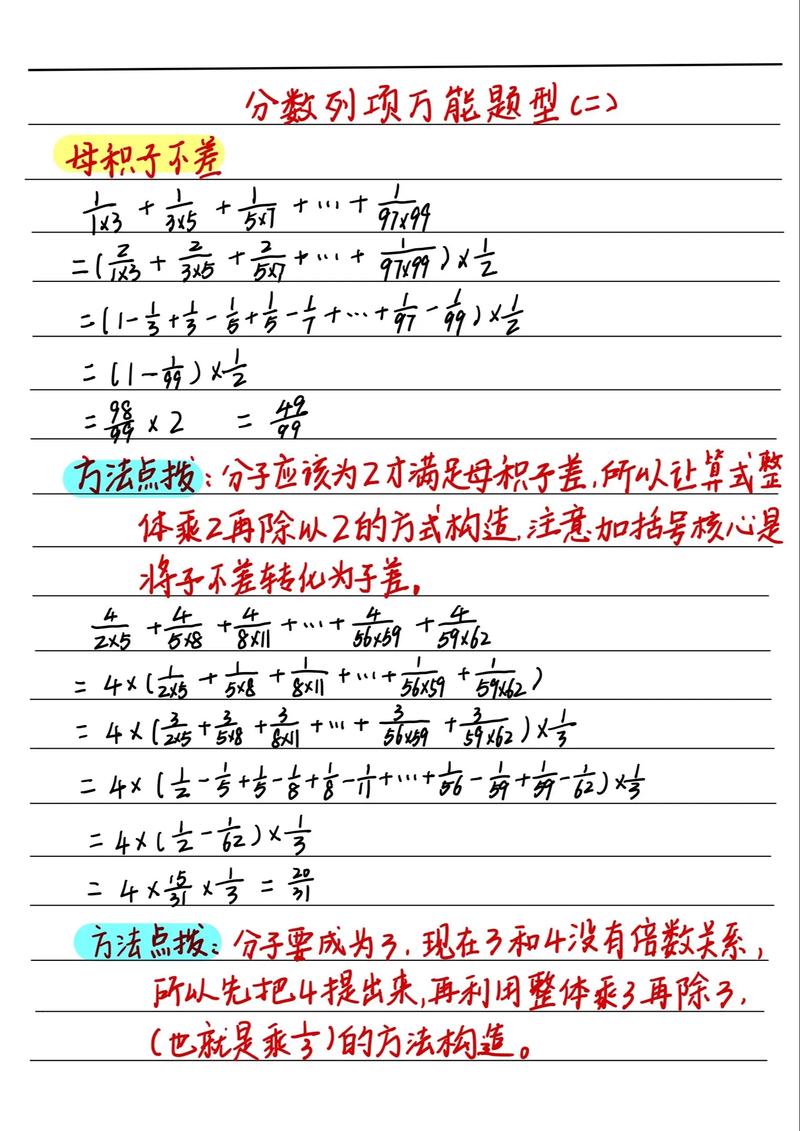 分数列项万能题型(二)
母积子不差
1/(1×3) + 1/(3×5) + 1/(5×7) + … + 1/(97×99)
=(2/(1×3) + 2/(3×5) + 2/(5×7) + … + 1/(97×99))×1/2
=(1-1/3+1/3-1/5+1/5-1/7+…+1/97-1/99)×1/2
=(1-1/99)×1/2
=98/99×2 =49/99
方法点拨:分子应该为2才满足母积子差,所以让算式整
体乘2再除以2的方式构造,注意加括号核心是
将子不差转化为子差。
4/(2×5) + 4/(5×8) + 4/(8×11) + … + 4/(56×59) + 4/(59×62)
= 4×(1/(2×5) + 1/(5×8) + 1/(8×11) + … + 1/(56×59) + 1/(59×62))
= 4×(3/(2×5) + 3/(5×8) + 3/(8×11) + … + 3/(56×59) + 3/(59×62))×1/3
= 4×(1/2-1/5+1/5-1/8+1/8-1/11+…+1/56-1/59+1/59-1/62)×1/3
= 4×(1/2-1/62)×1/3
= 4×15/31×1/3 = 20/31
方法点拨:分子要成为3,现在3和4没有倍数关系,
所以先把4提出来,再利用整体乘3再除3,
(也就是乘1/3)的方法构造。